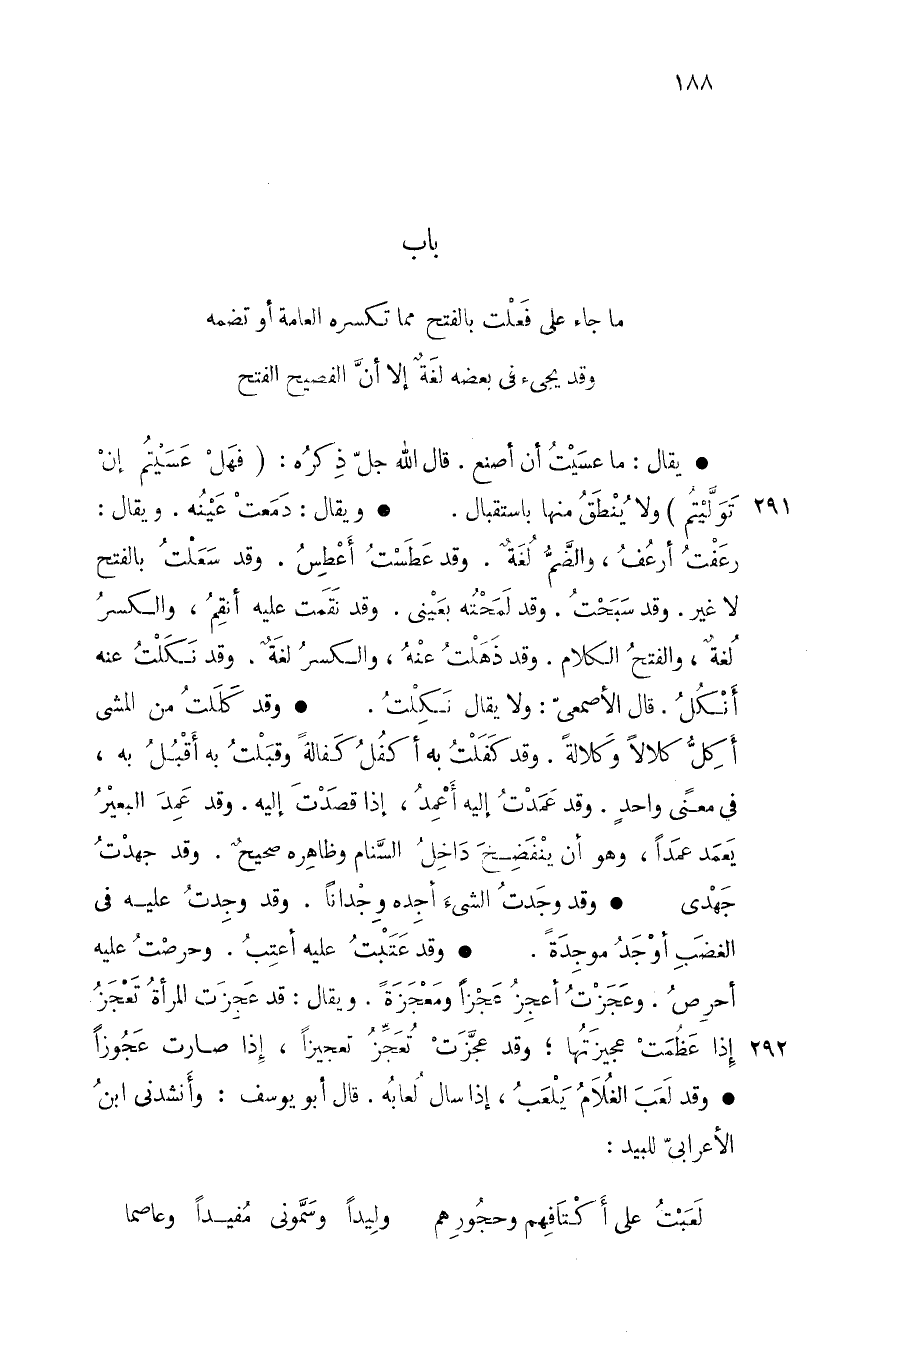 ١٨٨
باب
ما جاء على فَعَلْت بالفتح مما تكسره العامة أو تضمه
وقد يجىء فى بعضه لغَةٌ إلا أنَّ الفصيح الفتح
● يقال : ما عسَيْتُ أن أصنع . قال الله جلّ ذِكرُه : ( فهَلْ عَسَيْتم إنْ
٢٩١ تَوَلَّيْتُم ) ولا يُنْطَقُ منها باستقبال . ● ويقال : دَمَعتْ عَيْنُه . ويقال :
رعَفْتُ أرعُفُ ، والضَّمُّ لُغَةٌ . وقد عَطَسْتُ أَعْطِسُ . وقد سَعَلْتُ بالفتح
لا غير . وقد سَبَحْتُ . وقد لَمَحْتُه بعَيْنى . وقد نَقَمت عليه أنقِمُ ، والكسرُ
لُغةٌ ، والفتحُ الكلام . وقد ذَهَلْتُ عنْهُ ، والكسرُ لغَةٌ . وقد نَكَلْتُ عنه
أَنْكُلُ . قال الأصمعىّ : ولا يقال نَكِلْتُ . ● وقد كَلَلتُ من المشى
أَكِلُّ كلالاً وَكلالةً . وقد كفَلْتُ به أكفُلُ كَفالةً وقبَلْتُ به أَقْبُلُ به ،
في معنًى واحدٍ . وقد عَمَدْتُ إليه أَعْمِدُ ، إذا قصَدْتَ إليه . وقد عَمِدَ البعيْرُ
يَعمَد عمَداً ، وهو أن يَنْفَضِخَ دَاخِلُ السَّنام وظاهِره صحيحٌ . وقد جهدْتُ
جَهْدى ● وقد وجَدتُ الشىءَ أجِده وِجْداناً . وقد وجِدتُ عليه فى
الغضَبِ أوْجَدُ موجِدَةً . ● وقد عَتَبْتُ عليه أعتِبُ . وحرصْتُ عليه
أحرِصُ . وعَجَزْتُ أعجِزُ عَجْزاً ومَعْجَزَةً . ويقال : قد عَجِزَت المرأةُ تَعْجَزُ
٢٩٢ إِذا عَظُمَتْ عجِيزَتُها ؛ وقد عجَّزَتْ تُعَجِّزُ تعجيزاً ، إِذا صارت عَجُوزاً
● وقد لَعَبَ الغُلاَمُ يَلْعَبُ ، إذا سال لُعابُه . قال أبو يوسف : وأَنشدنى ابنُ
الأعرابىّ للبيد :
لَعَبْتُ على أَكْتَافِهم وحجُورِهم وليداً وسَمَّونى مُفيداً وعاصما